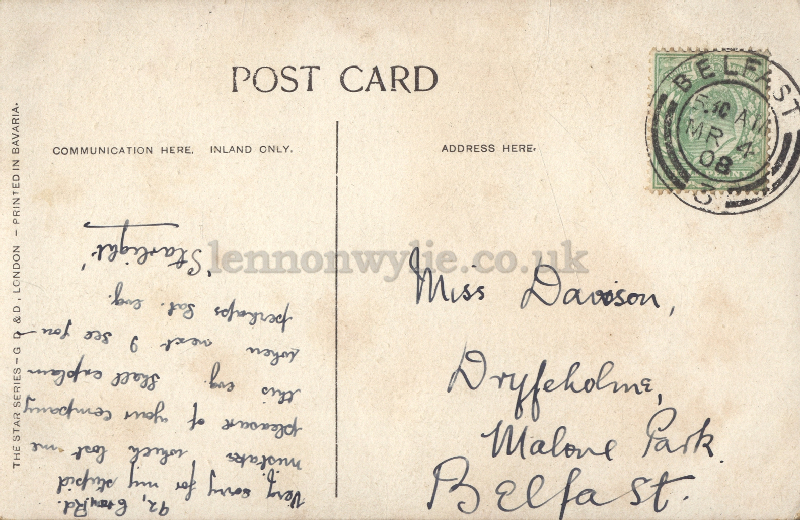 POST CARD
COMMUNICATION HERE. INLAND ONLY.
ADDRESS HERE.
THE STAR SERIES - G. D. & D., LONDON - PRINTED IN BAVARIA.
BELFAST
5.10 AM
MR 4
08
3
92, Rd.
Very sorry for my stupid
mistake which lost me
pleasure of your company
this evg. Shall explain
when next I see you -
perhaps Sat. evg.
'Starlight'
Miss Davison,
Dryfeholme,
Malone Park.
Belfast.
lennonwylie.co.uk